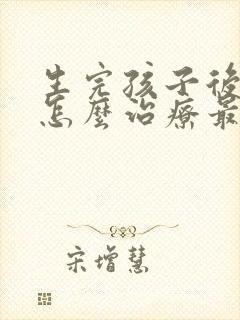 生完孩子後
怎麼治療最
宋增慧